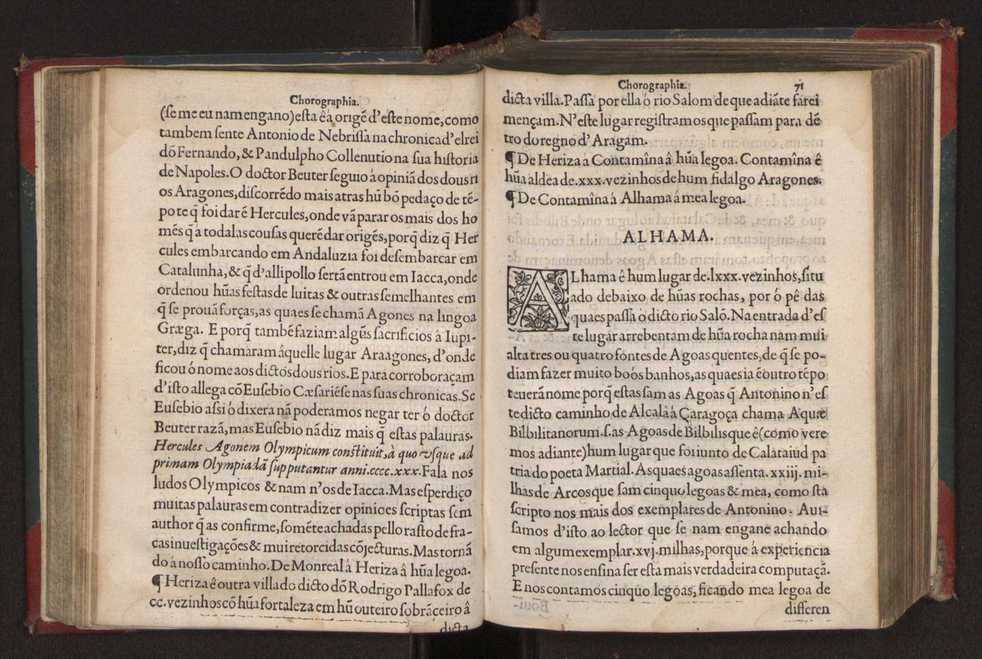 Chorographia.
(se me eu nam engano) esta é a origẽ d'este nome, como
tambem sente Antonio de Nebrissa na chronica d'elrei
dõ Fernando, & Pandulpho Collenutio na sua historia
de Napoles. O doctor Beuter seguio à opiniã dos dous ri
os Aragones, discorrẽdo mais atras hũ bõ pedaço de tẽ-
po te q̃ foi darẽ Hercules, onde vã parar os mais dos ho
mẽs q̃ a todalas cousas querẽ dar origẽs, porq̃ diz q̃ Her
cules embarcando em Andaluzia foi desembarcar em
Catalunha, & q̃ d'alli pollo sertã entrou em Iacca, onde
ordenou hũas festas de luitas & outras semelhantes em
q̃ se prouã forças, as quaes se chamã Agones na lingoa
Græga. E porq̃ tambẽ faziam algũs sacrificios à Iupi-
ter, diz q̃ chamaram àquelle lugar Araagones, d'onde
ficou ó nome aos dictos dous rios. E para corroboraçam
d'isto allega cõ Eusebio Cæsariẽse nas suas chronicas. Se
Eusebio assi ó dixera nã poderamos negar ter ó doctor
Beuter razã, mas Eusebio nã diz mais q̃ estas palauras.
Hercules Agonem Olympicum constituit, à quo vsque ad
primam Olympiadã supputantur anni.cccc.xxx. Fala nos
ludos Olympicos & nam n'os de Iacca. Mas esperdiço
muitas palauras em contradizer opiniões scriptas sem
author q̃ as confirme, somẽte achadas pello rasto de fra-
cas inuestigações & mui retorcidas cõjecturas. Mas tornã
do à nosso caminho. De Monreal à Heriza â hũa legoa.
¶ Heriza é outra villa do dicto dõ Rodrigo Pallafox de
cc. vezinhos cõ hũa fortaleza em hũ outeiro sobrãceiro â
dicta
Chorographia. 71
dicta villa. Passa por ella ò rio Salom de que adiãte farei
mençam. N'este lugar registramos que passam para dẽ
tro do regno d'Aragam.
¶ De Heriza a Contamîna â hũa legoa. Contamîna é
hũa aldea de.xxx.vezinhos de hum fidalgo Aragones.
¶ De Contamîna à Alhama á mea legoa.
ALHAMA.
ALhama é hum lugar de.lxxx.vezinhos, situ
ado debaixo de hũas rochas, por ó pê das
quaes passa ò dicto rio Salõ. Na entrada d'es
te lugar arrebentam de hũa rocha nam mui
alta tres ou quatro fontes de Agoas quentes, de q̃ se po-
diam fazer muito boõs banhos, as quaes ia é outro tẽpo
teuerã nome porq̃ estas sam as Agoas q̃ Antonino n'es
te dicto caminho de Alcalà à Çaragoça chama Aquæ
Bilbilitanorum.s.as Agoas de Bilbilis que é (como vere
mos adiante) hum lugar que foi iunto de Calataiud pa
tria do poeta Martial. As quaes agoas assenta.xxiij.mi-
lhas de Arcos que sam cinquo legoas & mea, como sta
scripto nos mais dos exemplares de Antonino. Aui-
samos d'isto ao lector que se nam engane achando
em algum exemplar.xvj.milhas, porque à experiencia
presente nos ensina ser esta mais verdadeira computaçã.
E nos contamos cinquo legoas, ficando mea legoa de
differen